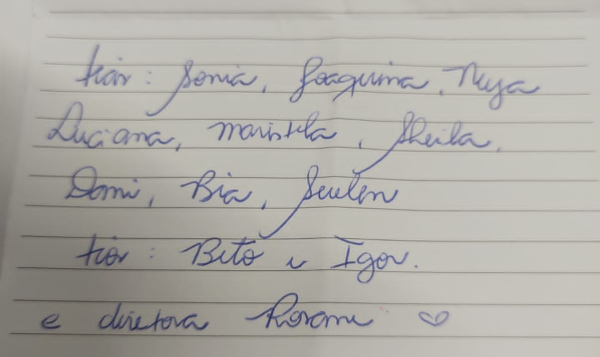 tias: Sonia, Joaquina, Neya
Luciana, maristela, Sheila,
Dani, Bia, Suelen
tios: Beto e Igor.
e diretora Rosane ♡